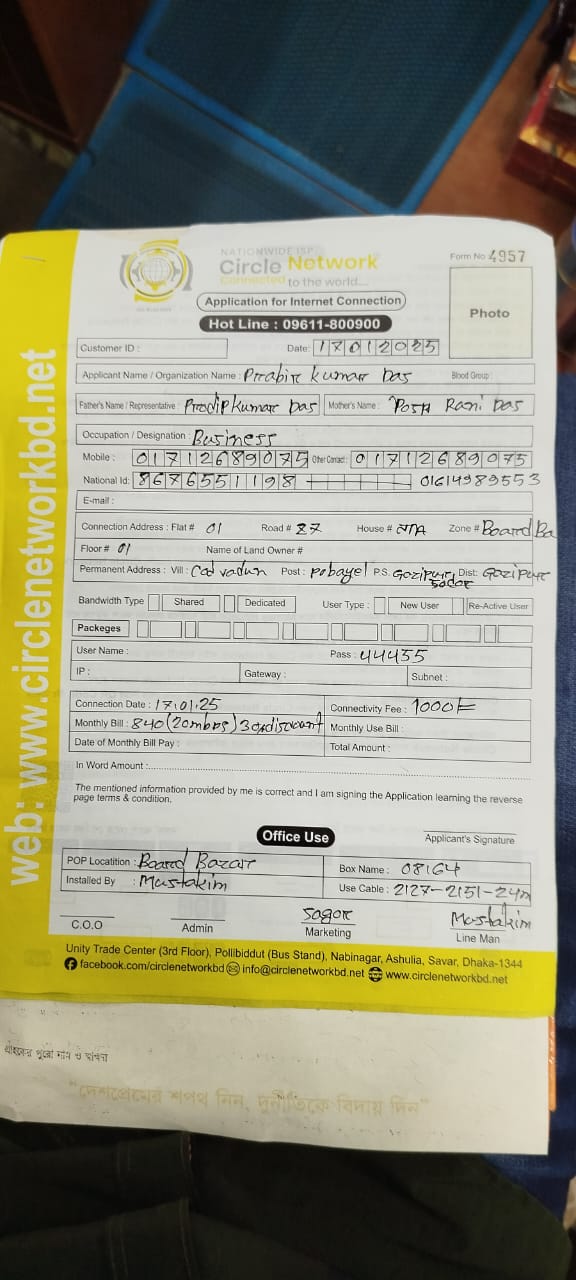 NATIONWIDE ISP
Circle Network
Connected to the world...
Form No 4957
Application for Internet Connection
Photo
Hot Line : 09611-800900
Customer ID :
Date: 17012025
Applicant Name / Organization Name : Prrabirr kumarr Das Blood Group :
Father's Name / Representative : Prrodip kumarr Das Mother's Name : Rani Das
Occupation / Designation : Business
Mobile : 01712689075 Other Contact : 01712689075
National Id: 8676551198 01614989553
E-mail :
Connection Address : Flat # 01 Road # 27 House # N/A Zone # Board Ba
Floor # 01 Name of Land Owner #
Permanent Address : Vill : Post : Pobayel P.S. Gazipur, Sodor Dist: Gazipur
Bandwidth Type Shared Dedicated User Type : New User Re-Active User
Packeges
User Name : Pass : 44455
IP : Gateway : Subnet :
Connection Date : 17.01.25 Connectivity Fee : 1000/=
Monthly Bill : 840 (20mbps) discount Monthly Use Bill :
Date of Monthly Bill Pay : Total Amount :
In Word Amount :
The mentioned information provided by me is correct and I am signing the Application learning the reverse
page terms & condition.
Office Use
Applicant's Signature
POP Locatition : Board Bazar Box Name : 08164
Installed By : Mustakim Use Cable : 2127-2151-24m
Sagor Mostakim
C.O.O Admin Marketing Line Man
Unity Trade Center (3rd Floor), Pollibiddut (Bus Stand), Nabinagar, Ashulia, Savar, Dhaka-1344
facebook.com/circlenetworkbd info@circlenetworkbd.net www.circlenetworkbd.net
web: www.circlenetworkbd.net
গ্রাহকের পুরো নাম ও ঠিকানা
"দেশপ্রেমের শপথ নিন, দুর্নীতিকে বিদায় দিন"